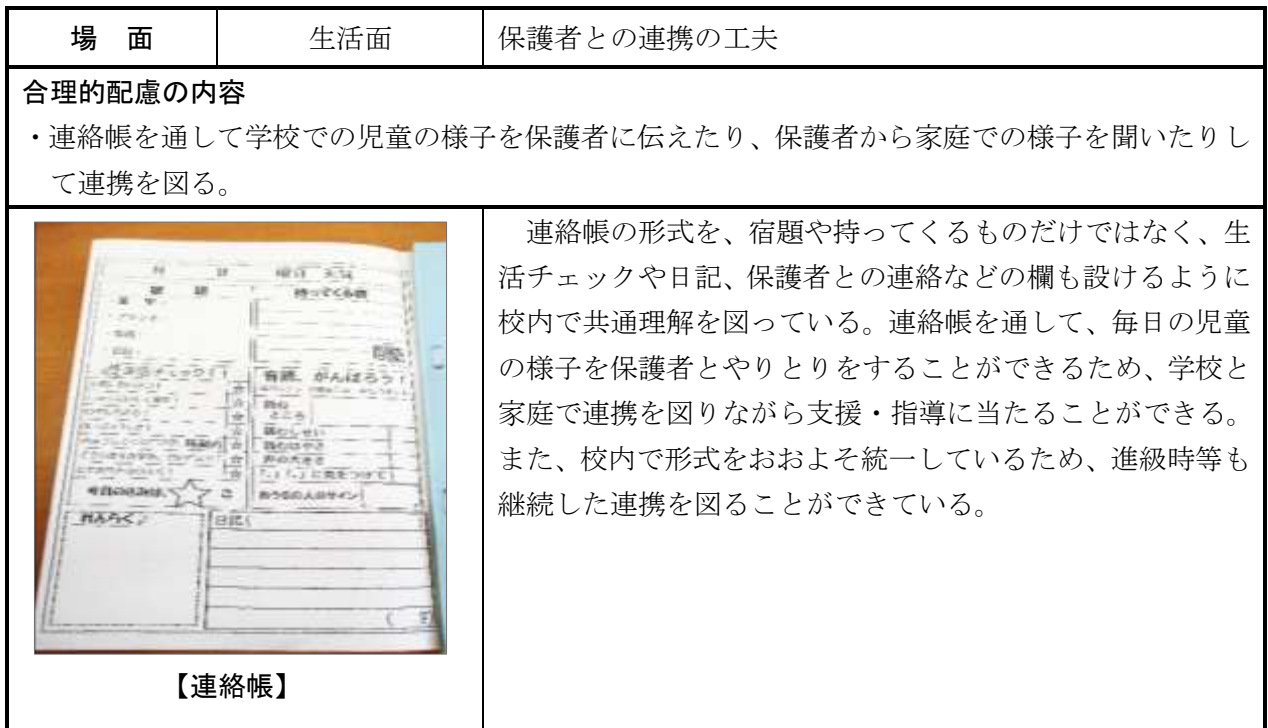 場 面
生活面
保護者との連携の工夫
合理的配慮の内容
・連絡帳を通して学校での児童の様子を保護者に伝えたり、保護者から家庭での様子を聞いたりし
て連携を図る。
月 日 曜日 天気
持ってくる物
音読、がんばろう！
読む
ところ
読むしせい
読むはやさ
声の大きさ
「、」「。」に気をつけて
おうちの人のサイン
れんらく♪
日記(
【連絡帳】
連絡帳の形式を、宿題や持ってくるものだけではなく、生
活チェックや日記、保護者との連絡などの欄も設けるように
校内で共通理解を図っている。連絡帳を通して、毎日の児童
の様子を保護者とやりとりをすることができるため、学校と
家庭で連携を図りながら支援・指導に当たることができる。
また、校内で形式をおおよそ統一しているため、進級時等も
継続した連携を図ることができている。